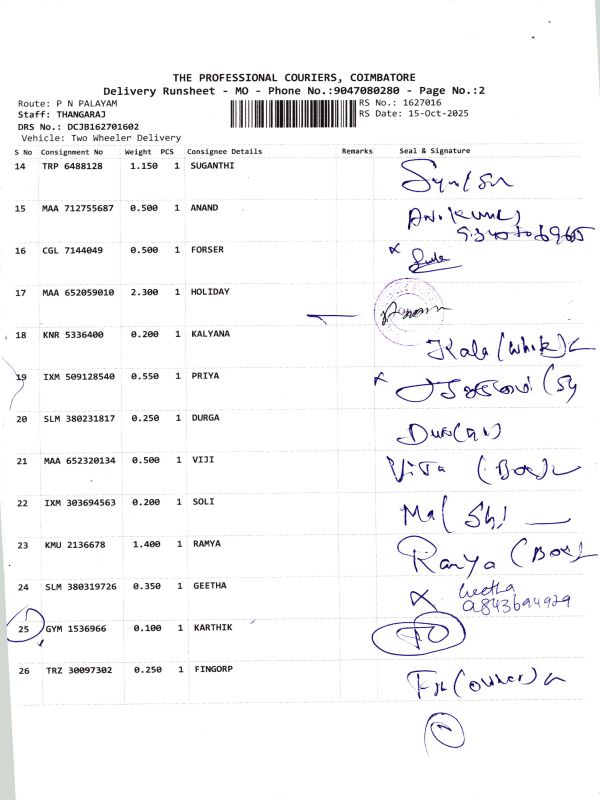 THE PROFESSIONAL COURIERS, COIMBATORE
Delivery Runsheet - MO - Phone No.:9047080280 - Page No.:2
Route: P N PALAYAM
RS No.: 1627016
Staff: THANGARAJ
RS Date: 15-Oct-2025
DRS No.: DCJB162701602
Vehicle: Two Wheeler Delivery
S No Consignment No Weight PCS Consignee Details Remarks Seal & Signature
14 TRP 6488128 1.150 1 SUGANTHI
15 MAA 712755687 0.500 1 ANAND
16 CGL 7144049 0.500 1 FORSER
17 MAA 652059010 2.300 1 HOLIDAY
18 KNR 5336400 0.200 1 KALYANA Kala
19 IXM 509128540 0.550 1 PRIYA
20 SLM 380231817 0.250 1 DURGA
21 MAA 652320134 0.500 1 VIJI (Box)
22 IXM 303694563 0.200 1 SOLI
23 KMU 2136678 1.400 1 RAMYA Ranya (Box)
24 SLM 380319726 0.350 1 GEETHA Geetha
25 GYM 1536966 0.100 1 KARTHIK
26 TRZ 30097302 0.250 1 FINGORP (owner)